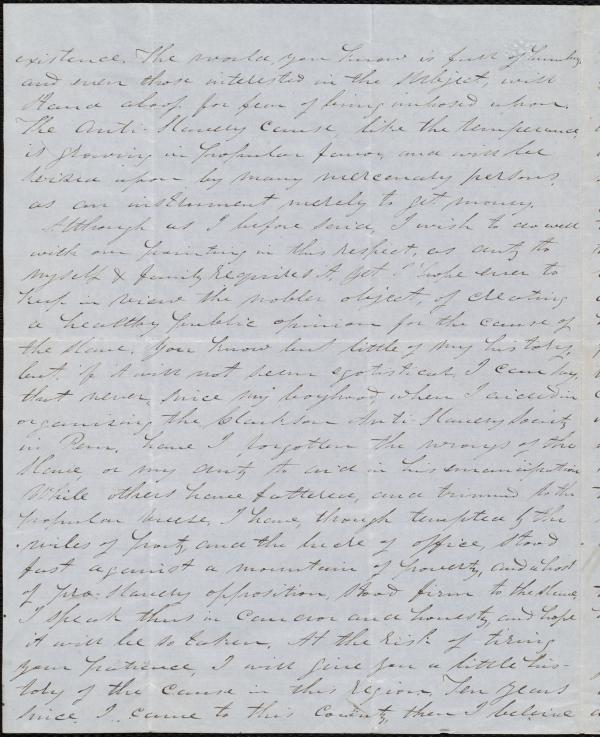 existence. The world, you know is full of humbug,
and even those interested in the subject, will
stand aloof for fear of being imposed upon.
The Anti-Slavery cause, like the temperance,
is growing in popular favor, and will be
seized upon by many mercenary persons,
as an instrument merely to get money.
Although as I before said, I wish to do well
with our painting in this respect, as duty to
myself & family requires it, yet I hope ever to
keep in view the nobler object, of creating
a healthy public opinion for the cause of
the slave. You know but little of my history,
but if it will not seem egotistical, I can say,
that never since my boyhood, when I aided in
organising the Clarkson Anti-Slavery Society
in Penn. have I forgotten the wrongs of the
slave, or my duty to aid in his emancipation
While others have faltered, and trimmed to the
popular breeze, I have, though tempted by the
wiles of party, and the lure of office, stood
fast against a mountain of poverty, and a host
of pro-slavery opposition, stood firm to the slave,
I speak thus in candor and honesty, and hope
it will be so taken. At the risk of tiring
your patience, I will give you a little his-
tory of the cause in this region, Ten years
since I came to this County, then I believe